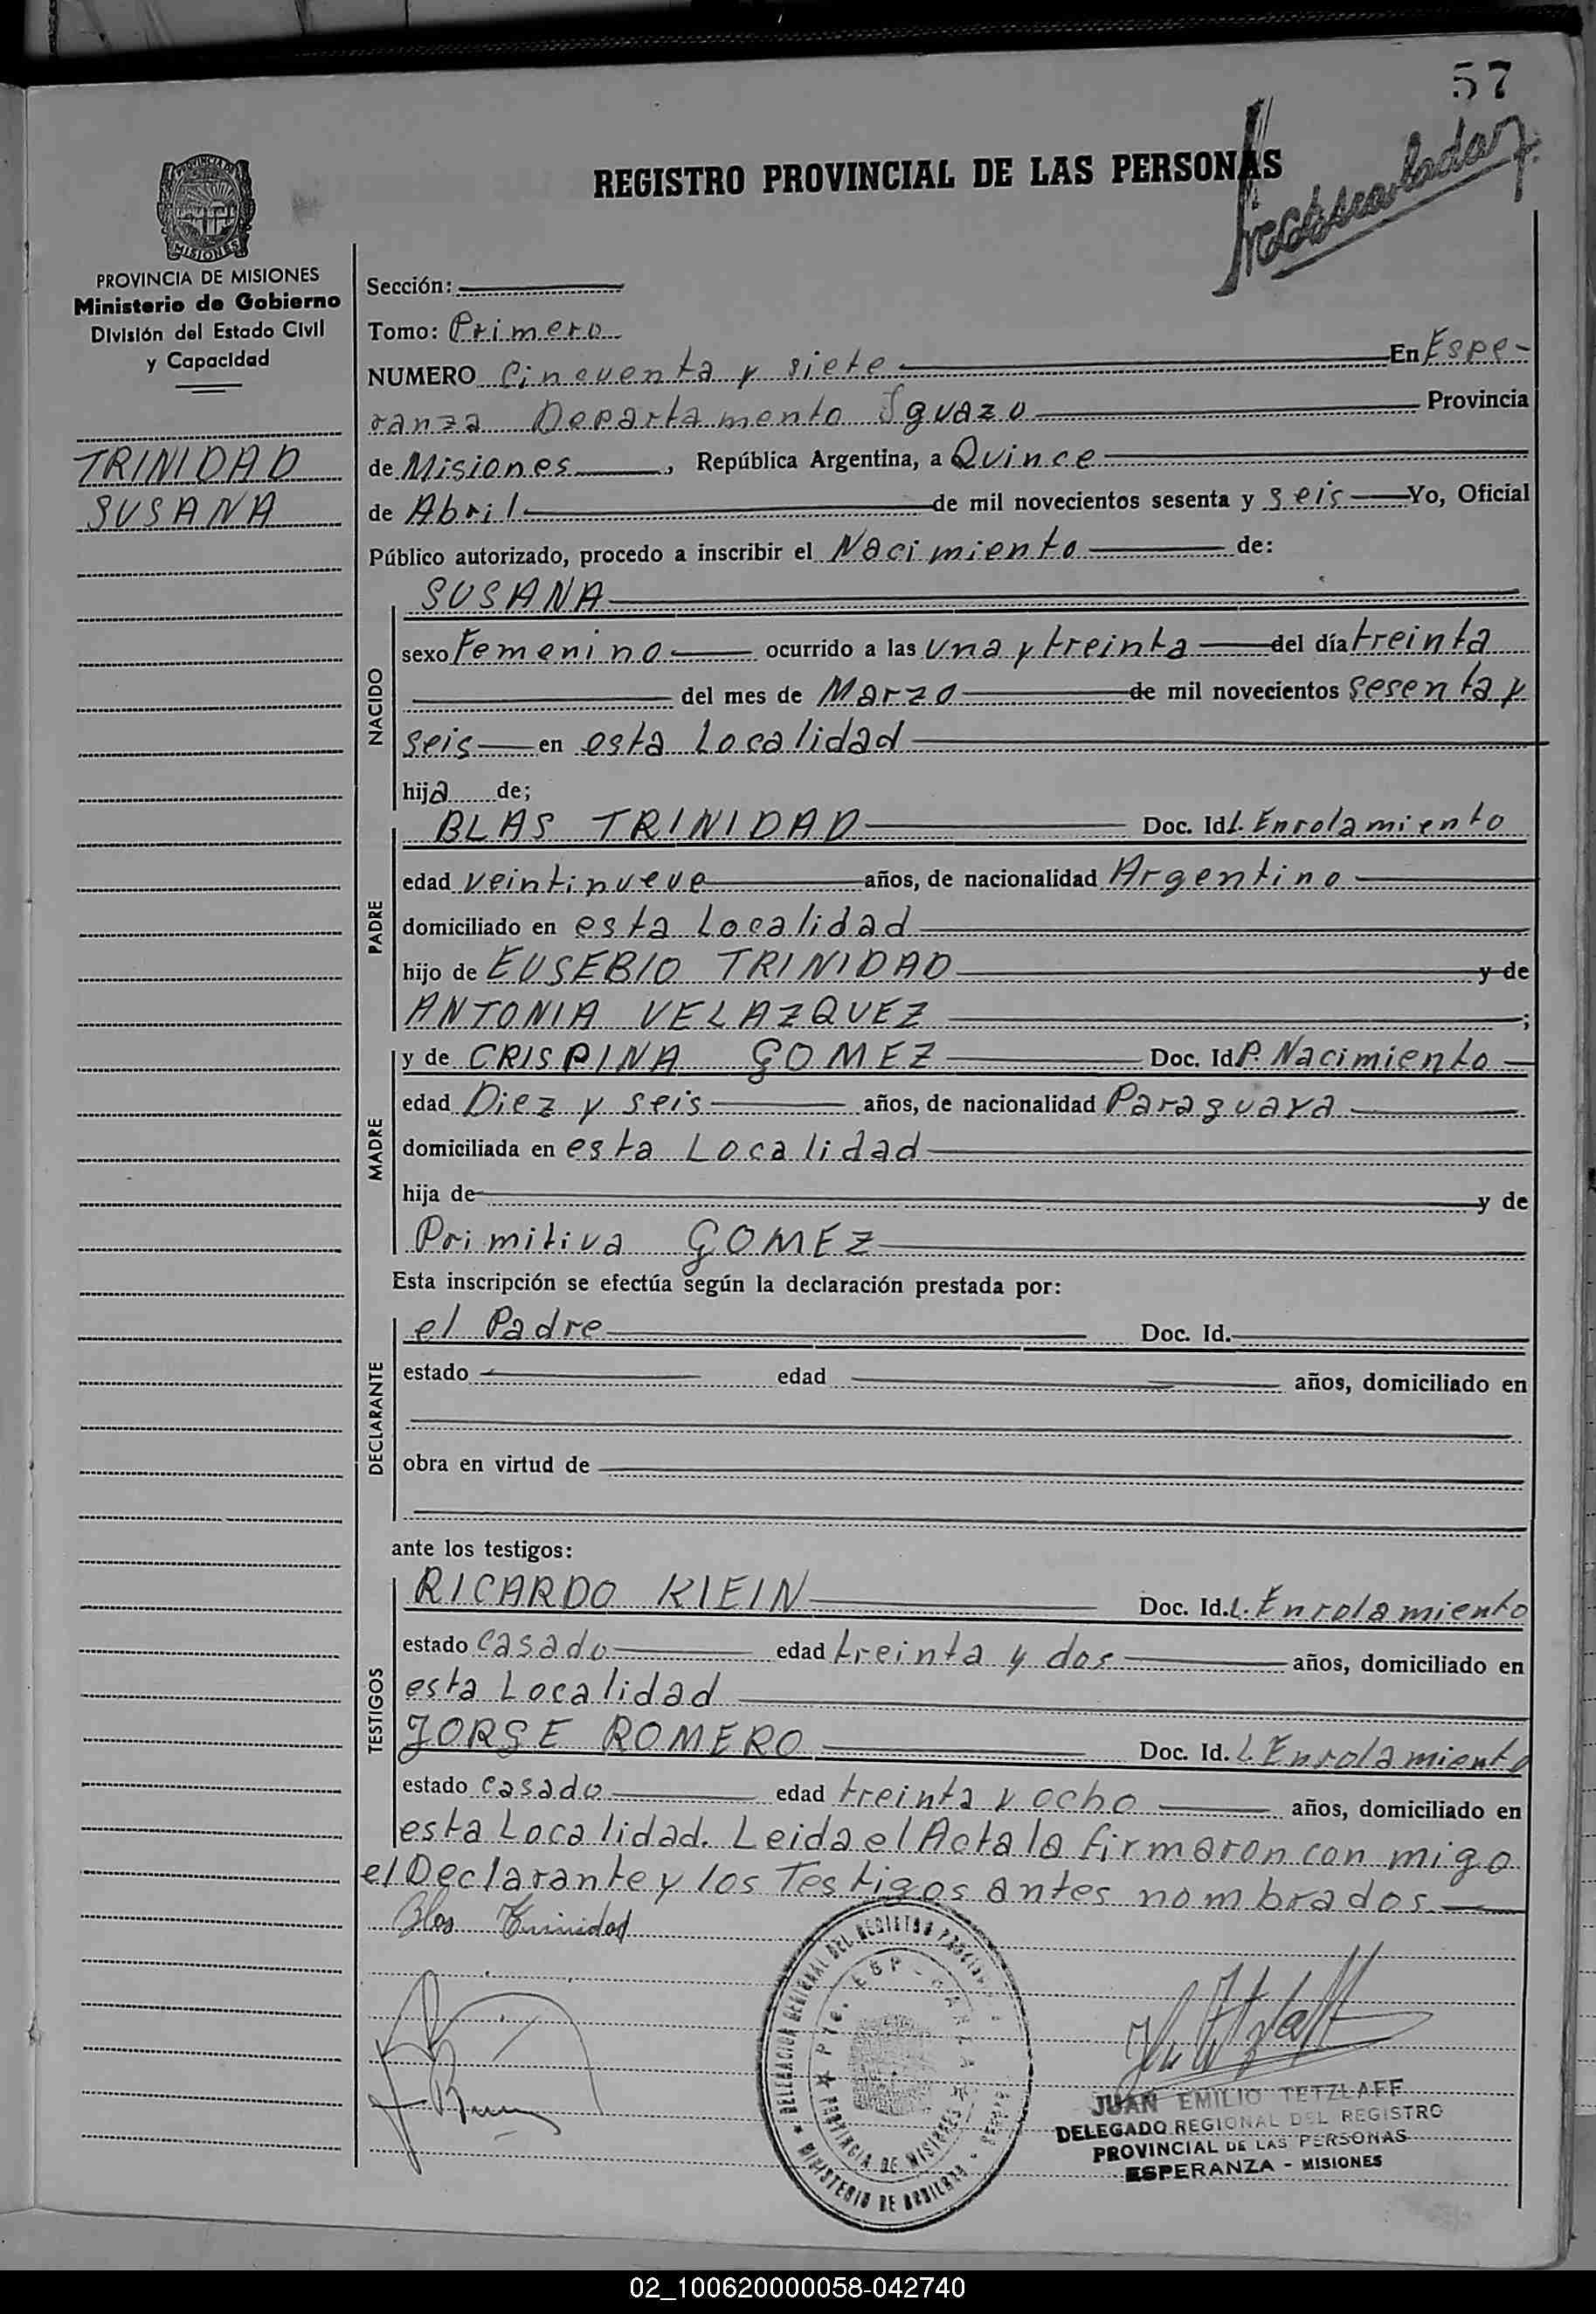 57
REGISTRO PROVINCIAL DE LAS PERSONAS
PROVINCIA DE
MISIONES
PROVINCIA DE MISIONES
Ministerio de Gobierno
División del Estado Civil
y Capacidad
TRINIDAD
SUSANA
Sección:
Tomo: Primero
NUMERO Cincuenta y siete En Espe-
ranza Departamento Iguazo Provincia
de Misiones, República Argentina, a Quince
de Abril de mil novecientos sesenta y seis Yo, Oficial
Público autorizado, procedo a inscribir el Nacimiento de:
NACIDO
SUSANA
sexo Femenino ocurrido a las una y treinta del día treinta
del mes de Marzo de mil novecientos sesenta y
seis en esta Localidad
hija de;
PADRE
BLAS TRINIDAD Doc. Id L. Enrolamiento
edad veintinueve años, de nacionalidad Argentino
domiciliado en esta Localidad
hijo de EUSEBIO TRINIDAD y de
ANTONIA VELAZQUEZ ;
MADRE
y de CRISPINA GOMEZ Doc. Id P. Nacimiento
edad Diez y seis años, de nacionalidad Paraguaya
domiciliada en esta Localidad
hija de y de
Primitiva GOMEZ
Esta inscripción se efectúa según la declaración prestada por:
DECLARANTE
el Padre Doc. Id.
estado edad años, domiciliado en
obra en virtud de
ante los testigos:
TESTIGOS
RICARDO KlEIN Doc. Id. L. Enrolamiento
estado casado edad treinta y dos años, domiciliado en
esta Localidad
JORGE ROMERO Doc. Id. L. Enrolamiento
estado casado edad treinta y ocho años, domiciliado en
esta Localidad. Leida el Acta la firmaron con migo
el Declarante y los Testigos antes nombrados
Blas Trinidad
DELEGACION REGIONAL DEL REGISTRO
PROVINCIA DE MISIONES
MINISTERIO DE GOBIERNO
JUAN EMILIO TETZLAFF
DELEGADO REGIONAL DEL REGISTRO
PROVINCIAL DE LAS PERSONAS
ESPERANZA - MISIONES
02_100620000058-042740